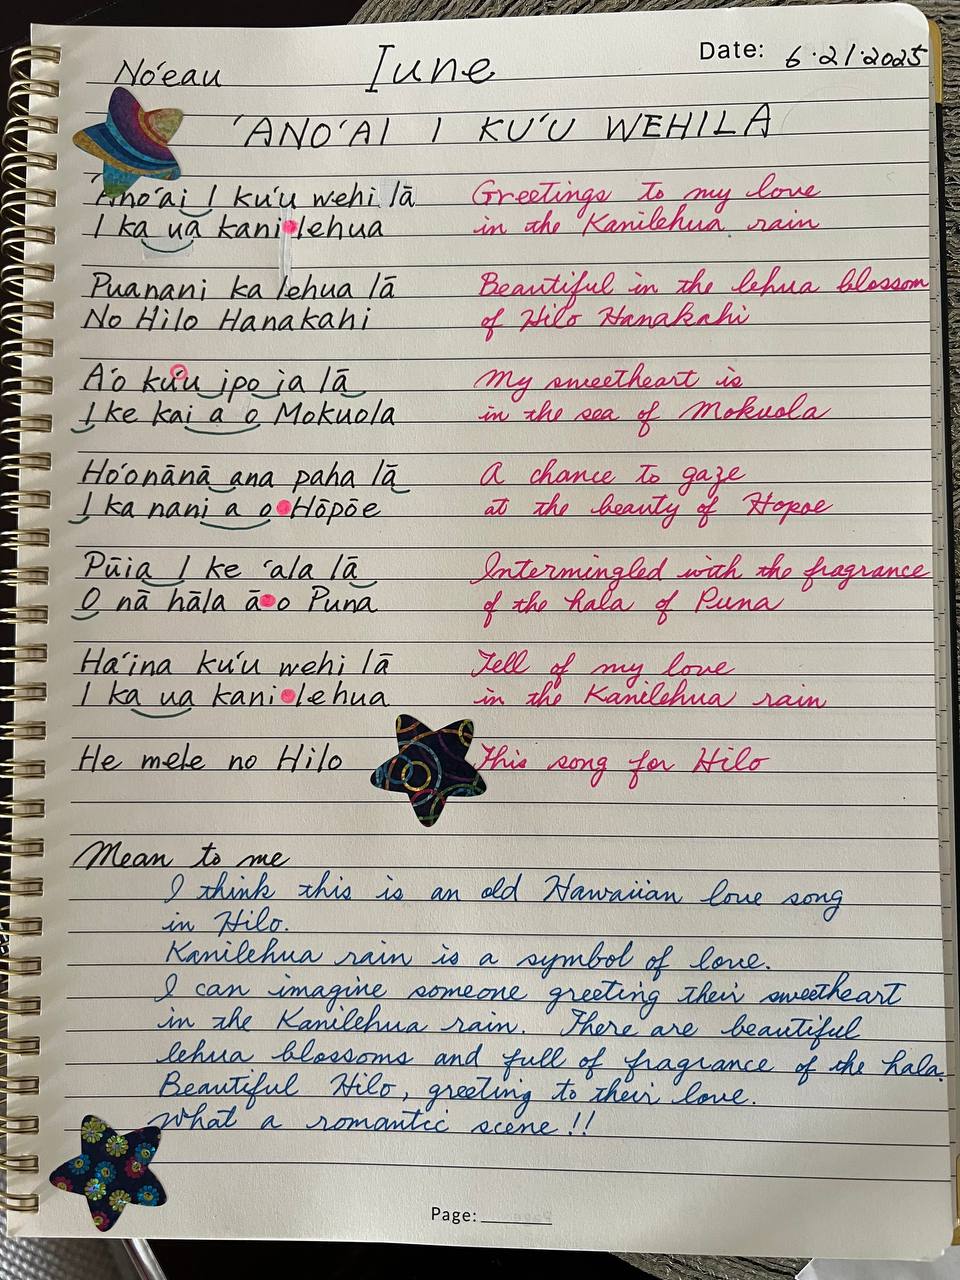 No'eau
Iune
Date: 6.21.2025
'ANO'AI I KU'U WEHILA
'Ano'ai I ku'u wehi lā
I ka ua kani lehua
Greetings to my love
in the Kanilehua rain
Puanani ka lehua lā
No Hilo Hanakahi
Beautiful in the lehua blossom
of Hilo Hanakahi
A'o ku'u ipo ia lā
I ke kai a o Mokuola
My sweetheart is
in the sea of Mokuola
Ho'onānā ana paha lā
I ka nani a o Hōpōe
A chance to gaze
at the beauty of Hopoe
Pūia I ke 'ala lā
O nā hāla ā o Puna
Intermingled with the fragrance
of the hala of Puna
Ha'ina ku'u wehi lā
I ka ua kani lehua
Tell of my love
in the Kanilehua rain
He mele no Hilo
This song for Hilo
Mean to me
I think this is an old Hawaiian love song
in Hilo.
Kanilehua rain is a symbol of love.
I can imagine someone greeting their sweetheart
in the Kanilehua rain. There are beautiful
lehua blossoms and full of fragrance of the hala.
Beautiful Hilo, greeting to their love.
What a romantic scene!!
Page: